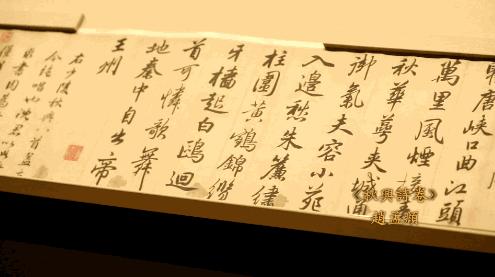 唐峽口曲江頭
萬里風煙接素
秋華萼夾城通
御氣夫容小苑
入邊愁朱簾繡
柱圍黃鶴錦纜
牙檣起白鷗迴
首可憐歌舞
地秦中自古帝
王州
右少陵秋興八首
《秋興詩卷》
趙孟頫